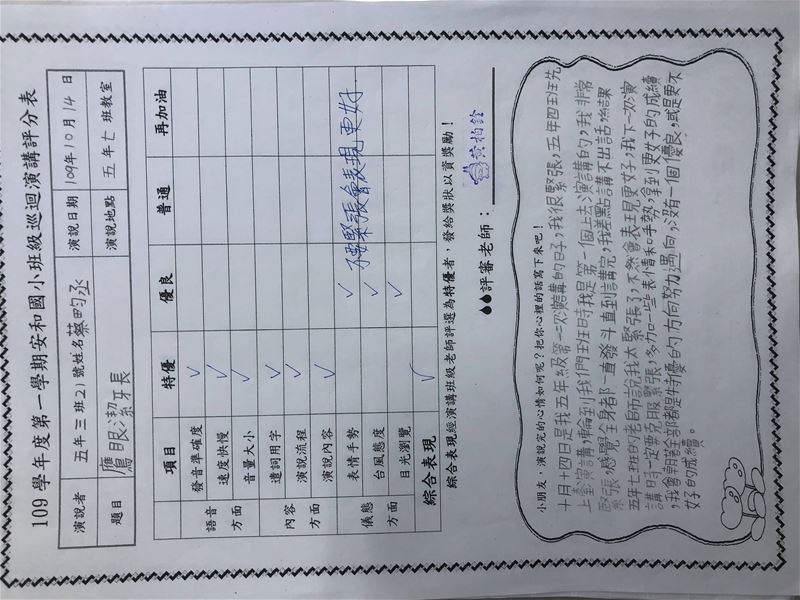 109 學年度第一學期安和國小班級巡迴演講評分表
演說者 五年三班21號姓名蔡昀丞 演說日期 109年10月14日
題目 鷹眼潔牙長 演說地點 五年七班教室
項目 特優 優良 普通 再加油
語音方面 發音準確度 ✓
速度快慢 ✓
音量大小 ✓
內容方面 遣詞用字 ✓
演說流程 ✓
演說內容 ✓
儀態方面 表情手勢 ✓
台風態度 ✓
目光瀏覽 ✓
不要緊張會表現更好.
綜合表現 ✓
綜合表現經演講班級老師評選為特優者,發給獎狀以資獎勵!
評審老師: 黃柏銓
小朋友,演說完的心情如何呢?把你心裡的話寫下來吧!
十月十四日是我五年級第一次演講的日子,我很緊張,五年四班先
上臺演講,輪到我們班時我是第一個上去演講的,我非常
緊張,感覺全身都一直發斗直到講完,我差點講不出話來,課
五年七班的老師說我太緊張了,不然會表現更好,我下一次演
講日一定要克服緊張,多加一些表情和手勢,拿到更好的成績
,我會朝著全部都是特優的方向努力邁向,沒有一個優良,或是更不
好的成績。